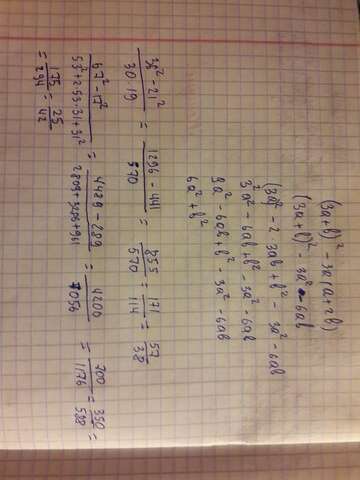 (3a+b)² - 3a(a+2b)
(3a+b)² - 3a² - 6ab
(3a)² - 2 3ab + b² - 3a² - 6ab
3²a² - 6ab + b² - 3a² - 6ab
9a² - 6ab + b² - 3a² - 6ab
6a² + b²
36² - 21² / 30·19 = 1296 - 441 / 570 = 855 / 570 = 171 / 114 = 57 / 38
67² - 17² / 53² + 2·53·31 + 31² = 4489 - 289 / 2809 + 3286 + 961 = 4200 / 7056 = 700 / 1176 = 350 / 588 =
= 175 / 294 = 25 / 42